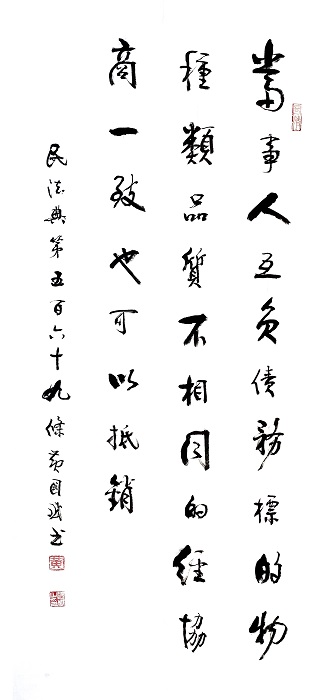 當事人互負債務標的物
種類品質不相同的經協
商一致也可以抵銷
民法典第五百六十九條黃國斌書